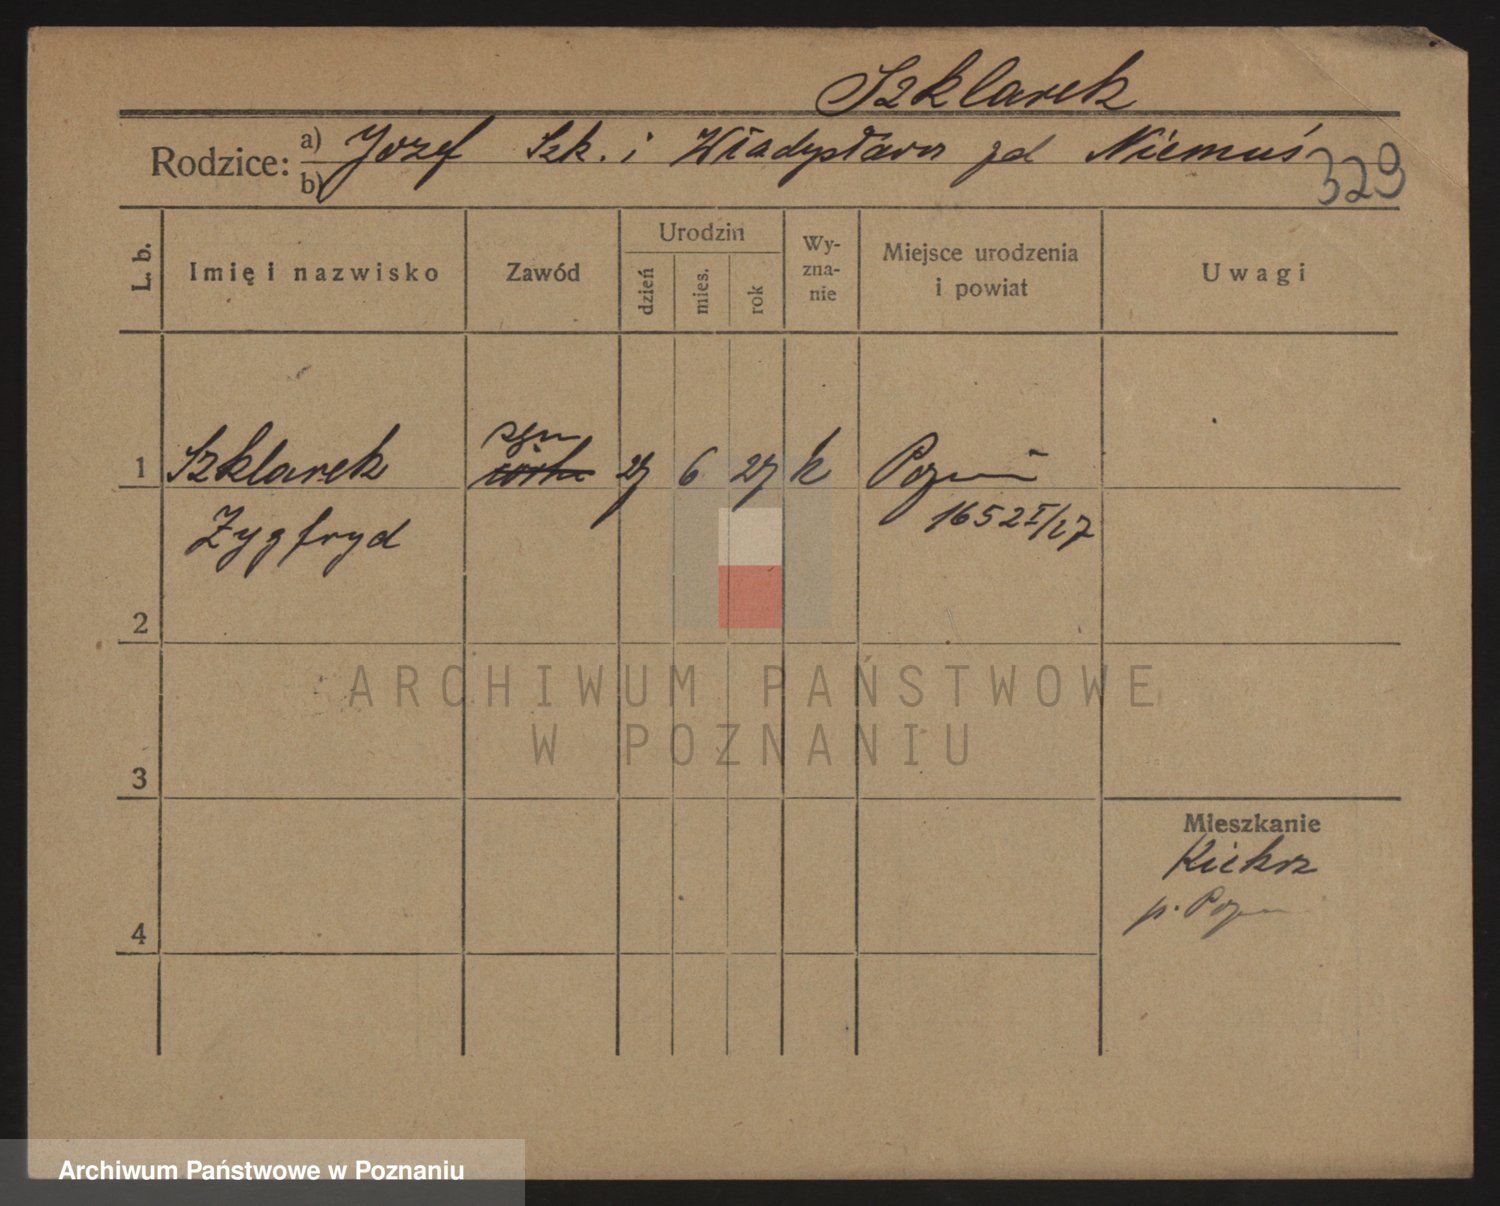 Szklarek
Rodzice: a) Jozef Szk. i Władysława zd Niemuś
b)
329
L. b.
Imię i nazwisko
Zawód
Urodzin
dzień
mies.
rok
Wy-
zna-
nie
Miejsce urodzenia
i powiat
Uwagi
1 Szklarek syn córka 27 6 27 k Pozn
Zygfryd 1652 I/27
2
3
4
Mieszkanie
Kiekrz
p. Pozn
ARCHIWUM PAŃSTWOWE
W POZNANIU
Archiwum Państwowe w Poznaniu